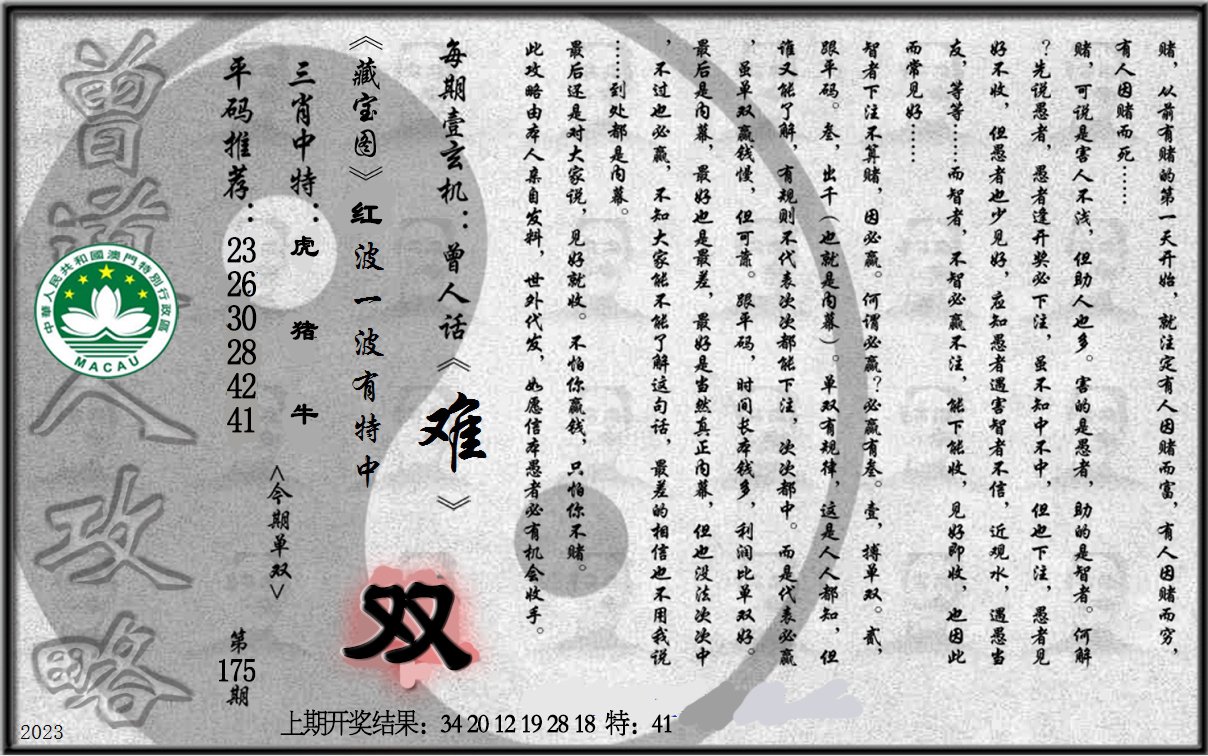 赌，从前有赌的第一天开始，就注定有人因赌而富，有人因赌而穷，
有人因赌而死……
赌，可说是害人不浅，但助人也多。害的是愚者，助的是智者。何解
？先说愚者，愚者逢开奖必下注，虽不知中不中，但也下注，愚者见
好不收，但愚者也少见好，应知愚者遇害智者不信，近观水，遇愚当
友，等等……而智者，不智必赢不注，能下能收，见好即收，也因此
而常见好……
智者下注不算赌，因必赢。何谓必赢？必赢有叁。壹，搏单双。贰，
跟平码。叁，出千（也就是内幕）。单双有规律，这是人人都知，但
谁又能了解，有规则不代表次次都能下注，次次都中。而是代表必赢
，虽单双赢钱慢，但可靠。跟平码，时间长本钱多，利润比单双好。
最后是内幕，最好也是最差，最好是当然真正内幕，但也没法次次中
，不过也必赢，不知大家能不能了解这句话，最差的相信也不用我说
……到处都是内幕。
最后还是对大家说，见好就收。不怕你赢钱，只怕你不赌。
此攻略由本人亲自发料，世外代发，如愿信本愚者必有机会收手。
每期壹玄机：曾人话《难》
《藏宝图》红波一波有特中
三肖中特：虎 猪 牛
<今期单双>
双
平码推荐：23 26 30 28 42 41
第175期
曾道人攻略
中華人民共和國澳門特別行政區
MACAU
上期开奖结果：34 20 12 19 28 18 特：41
2023